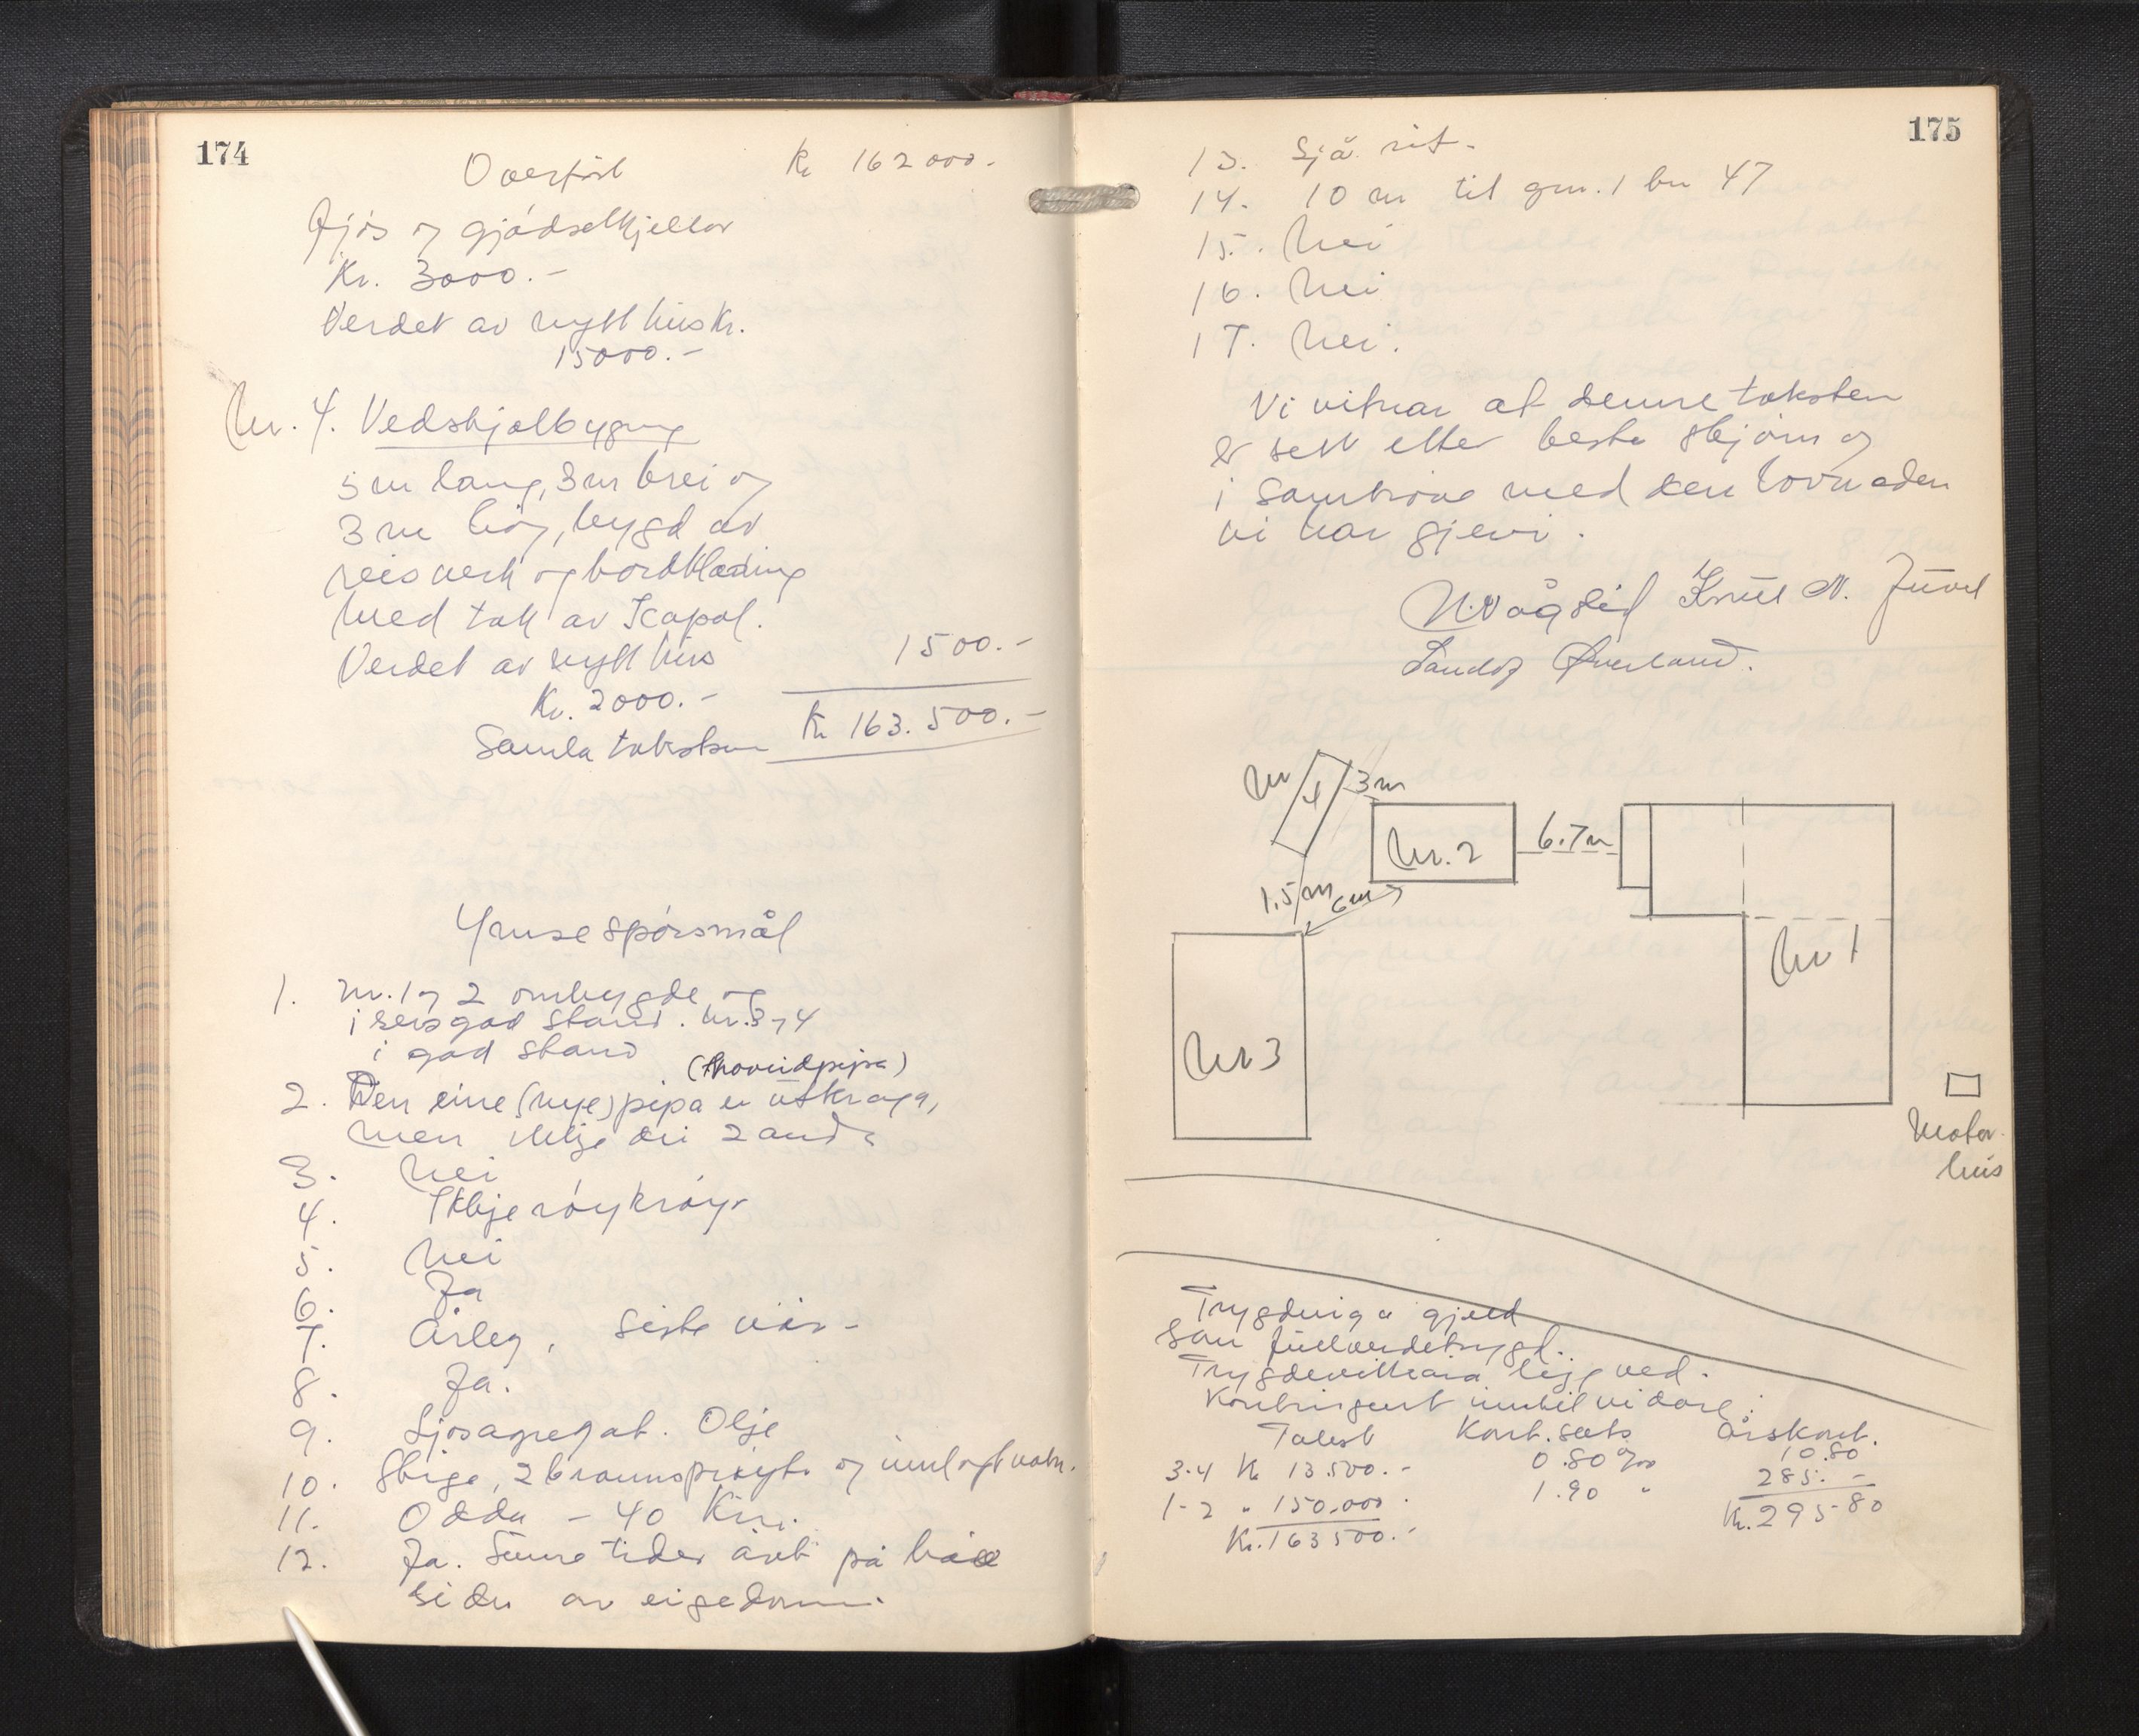 174
Overført Kr 162000.-
Fjøs og gjødselkjellar
Kr. 3000.-
Verdet av nytt hus Kr.
15000.-
Nr. 4. Vedskjolbygning
5 m lang, 3 m brei og
3 m høg, bygd av
reisverk og bordklæding
med tak av
Verdet av nytt hus 1500.-
Kr. 2000.-
Samla taksten Kr 163.500.-
Ymse spørsmål
1. Nr. 1 og 2 ombygde og
i god stand. Nr. 3 og 4
i god stand
(hovudpipa)
2. Den eine (nye) pipa er utkraga,
men ikkje dei 2 andre
3. Nei
4. Ikkje røykrøyr
5. Nei
6. Ja
7. Årleg, siste vår-
8. Ja.
9. Ljosagregat. Olje
10. Stige, 2 brannsprøyte og innlagt vatn.
11. Odda - 40 Km.
12. Ja. Sume tider års på båe
sider av eigedomm.
175
13. Sjå rit.
14. 10 m til gnr. 1 bn 47
15. Nei
16. Nei
17. Nei.
Vi vitnar at denne taksten
er sett etter beste skjøn og
i samhøve med den lovnaden
vi har gjevi.
N. Vågslid Knut N. Juvel
Sandof Øverland.
Nr 4 3 m
Nr. 2 6.7 m
1.5 m 6 m
Nr 1
Nr 3
Motor
hus
Trygdinga gjeld
som fullverdetrygd.
Trygdevilkåra ligg ved.
Kontingent inntil vidare:
Takst Kont.sats Årskont.
3-4 Kr 13.500.- 0.80 ‰ 10.80
1-2 " 150.000. 1.90 " 285.-
Kr. 163500.- Kr. 295-80